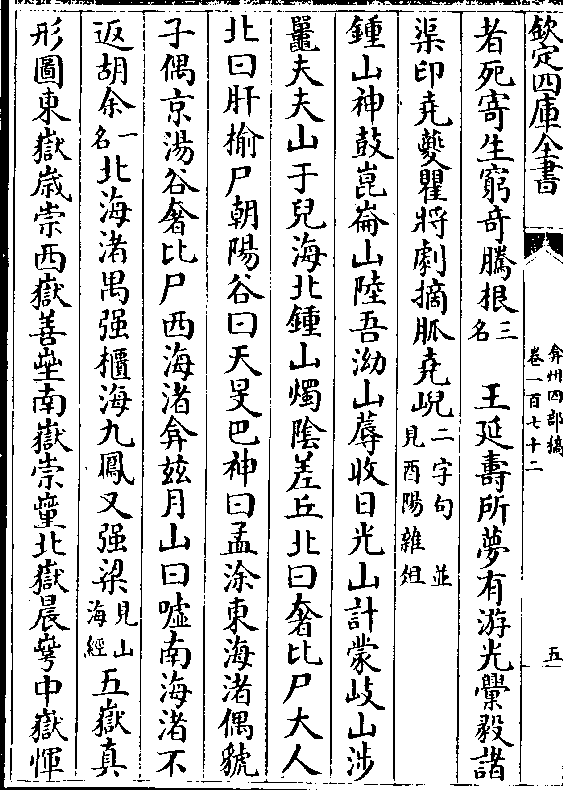 欽定四庫全書
弇州四部稿
卷一百七十二
五
者死寄生窮奇騰根三名 王延壽所夢有游光䍔毅諸
渠印堯夔瞿將劇摘脈堯峴二字句並見酉陽雜俎
鍾山神鼓崑崙山陸吾泑山蓐收日光山計蒙岐山涉
鼉夫夫山于兒海北鍾山燭陰差丘北曰奢比尸大人
北曰肝榆尸朝陽谷曰天吴巴神曰孟涂東海渚偶䝞
子偶京湯谷奢比尸西海渚弇兹月山曰噓南海渚不
返胡余一名北海渚禺强櫃海九鳳又强梁見山海經 五嶽真
形圖東嶽嵗崇西嶽善壘南嶽崇𡻕北嶽晨㟧中嶽惲